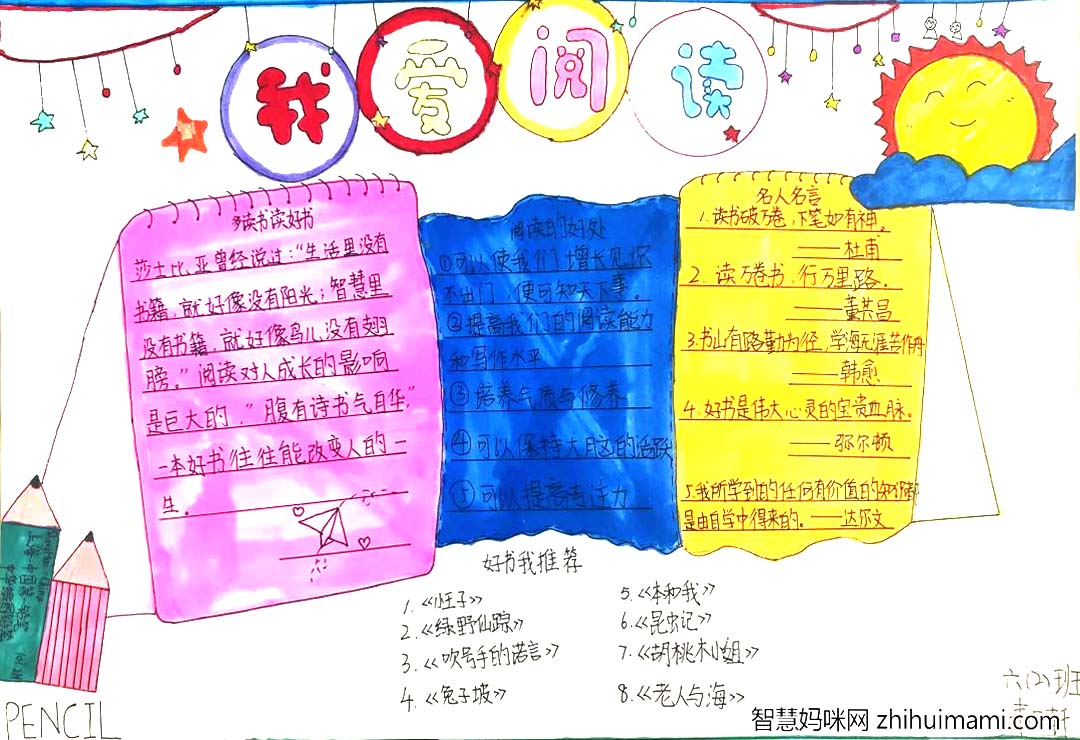 我爱阅读
多读书读好书
莎士比亚曾经说过:“生活里没有
书籍,就好像没有阳光;智慧里
没有书籍,就好像鸟儿没有翅
膀。”阅读对人成长的影响
是巨大的,“腹有诗书气自华,”
一本好书往往能改变人的一
生。
阅读的好处
①可以使我们增长见识
不出门,便可知天下事。
②提高我们的阅读能力
和写作水平
③培养气质与修养
④可以保持大脑的活跃
⑤可以提高专注力
名人名言
1.读书破万卷,下笔如有神。
——杜甫
2.读万卷书,行万里路。
——董其昌
3.书山有路勤为径,学海无涯苦作舟
——韩愈
4.好书是伟大心灵的宝贵血脉。
——弥尔顿
5.我所学到的任何有价值的知识都
是由自学中得来的。——达尔文
好书我推荐
1.《小王子》
2.《绿野仙踪》
3.《吹号手的诺言》
4.《兔子坡》
5.《本和我》
6.《昆虫记》
7.《胡桃木小姐》
8.《老人与海》
PENCIL
六(2)班
智慧妈咪网 zhihuimami.com